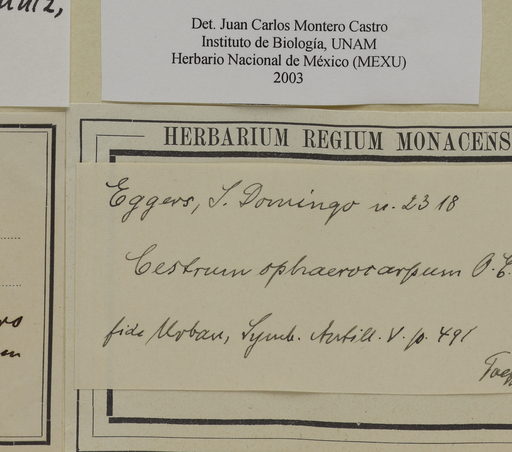 Det. Juan Carlos Montero Castro
Instituto de Biología, UNAM
Herbario Nacional de México (MEXU)
2003
HERBARIUM REGIUM MONACENS
Eggers, S. Domingo n. 2318
Cestrum sphaerocarpum O. E.
fide Urban, Symb. Antill. V. p. 491